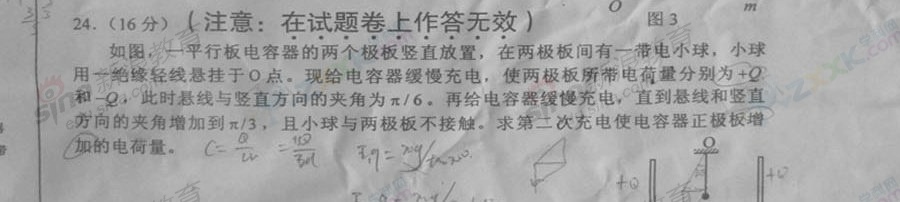 O m
24.（16分）（注意：在试题卷上作答无效） 图3
如图，一平行板电容器的两个极板竖直放置，在两极板间有一带电小球，小球
用一绝缘轻线悬挂于O点。现给电容器缓慢充电，使两极板所带电荷量分别为+Q
和-Q，此时悬线与竖直方向的夹角为π/6。再给电容器缓慢充电，直到悬线和竖直
方向的夹角增加到π/3，且小球与两极板不接触。求第二次充电使电容器正极板增
加的电荷量。
O
+Q +Q